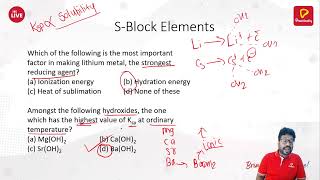 LIVE
Ksp ∝ Solubility
S-Block Elements
Which of the following is the most important
factor in making lithium metal, the strongest
reducing agent?
(a) Ionization energy (b) Hydration energy
(c) Heat of sublimation (d) None of these
Amongst the following hydroxides, the one
which has the highest value of Ksp at ordinary
temperature?
(a) Mg(OH)2 (b) Ca(OH)2
(c) Sr(OH)2 (d) Ba(OH)2
Li → Li+ + e-
Cs → Cs+ + e-
Mg
Ca
Sr
Ba
ionic